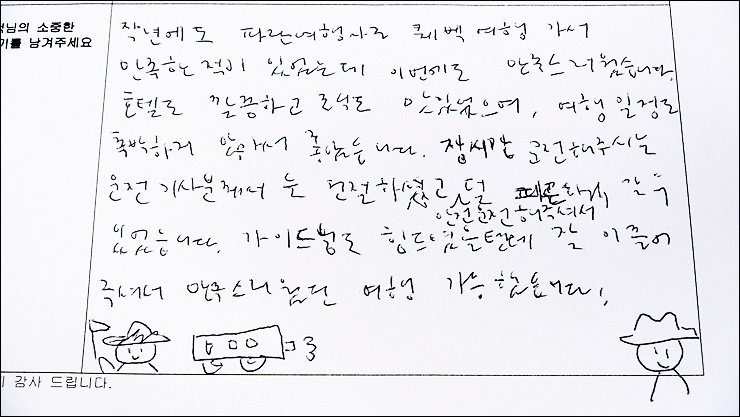 객님의 소중한
기를 남겨주세요
작년에도 파란여행사로 퀘벡 여행 가서
만족한 적이 있었는데 이번에도 만족스러웠습니다.
호텔도 깔끔하고 조식도 맛있었으며, 여행 일정도
촉박하지 않아서 좋았습니다. 장시간 운전해주시는
운전기사분께서도 친절하셨고 덜 피곤하게 갈 수
안전운전해주셔서
있었습니다. 가이드님도 힘드셨을텐데 잘 이끌어
주셔서 만족스러웠던 여행 가능했습니다.
감사 드립니다.